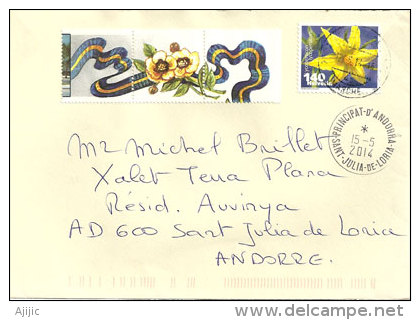 140
PRINCIPAT-D'ANDORRA
15-5
2014
SANT-JULIA-DE-LORIA
Mr Michel Brillet
Xalet Terra Plana
Résid. Auvinya
AD 600 Sant Julia de Loria
ANDORRE.
Ajjic
© www.delcampe.net